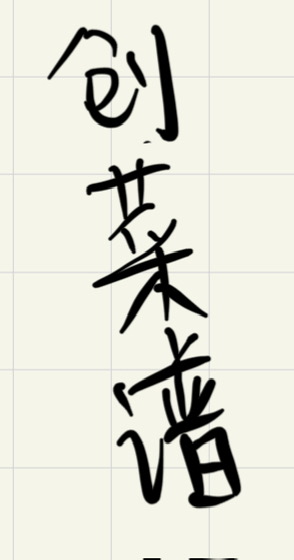 创菜谱